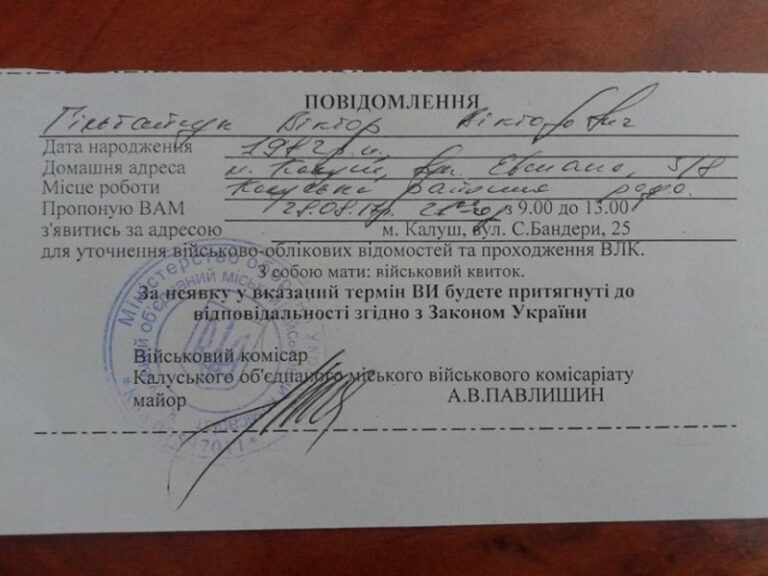 ПОВІДОМЛЕННЯ
Віктор Вікторович
Дата народження 1982 р.н.
Домашня адреса м. Калуш, вул. 3/8
Місце роботи
Пропоную ВАМ 28.08.17р. з 9.00 до 15.00
з'явитись за адресою м. Калуш, вул. С.Бандери, 25
для уточнення військово-облікових відомостей та проходження ВЛК.
З собою мати: військовий квиток.
За неявку у вказаний термін ВИ будете притягнуті до
відповідальності згідно з Законом України
Військовий комісар
Калуського об'єднаного міського військового комісаріату
майор А.В.ПАВЛИШИН